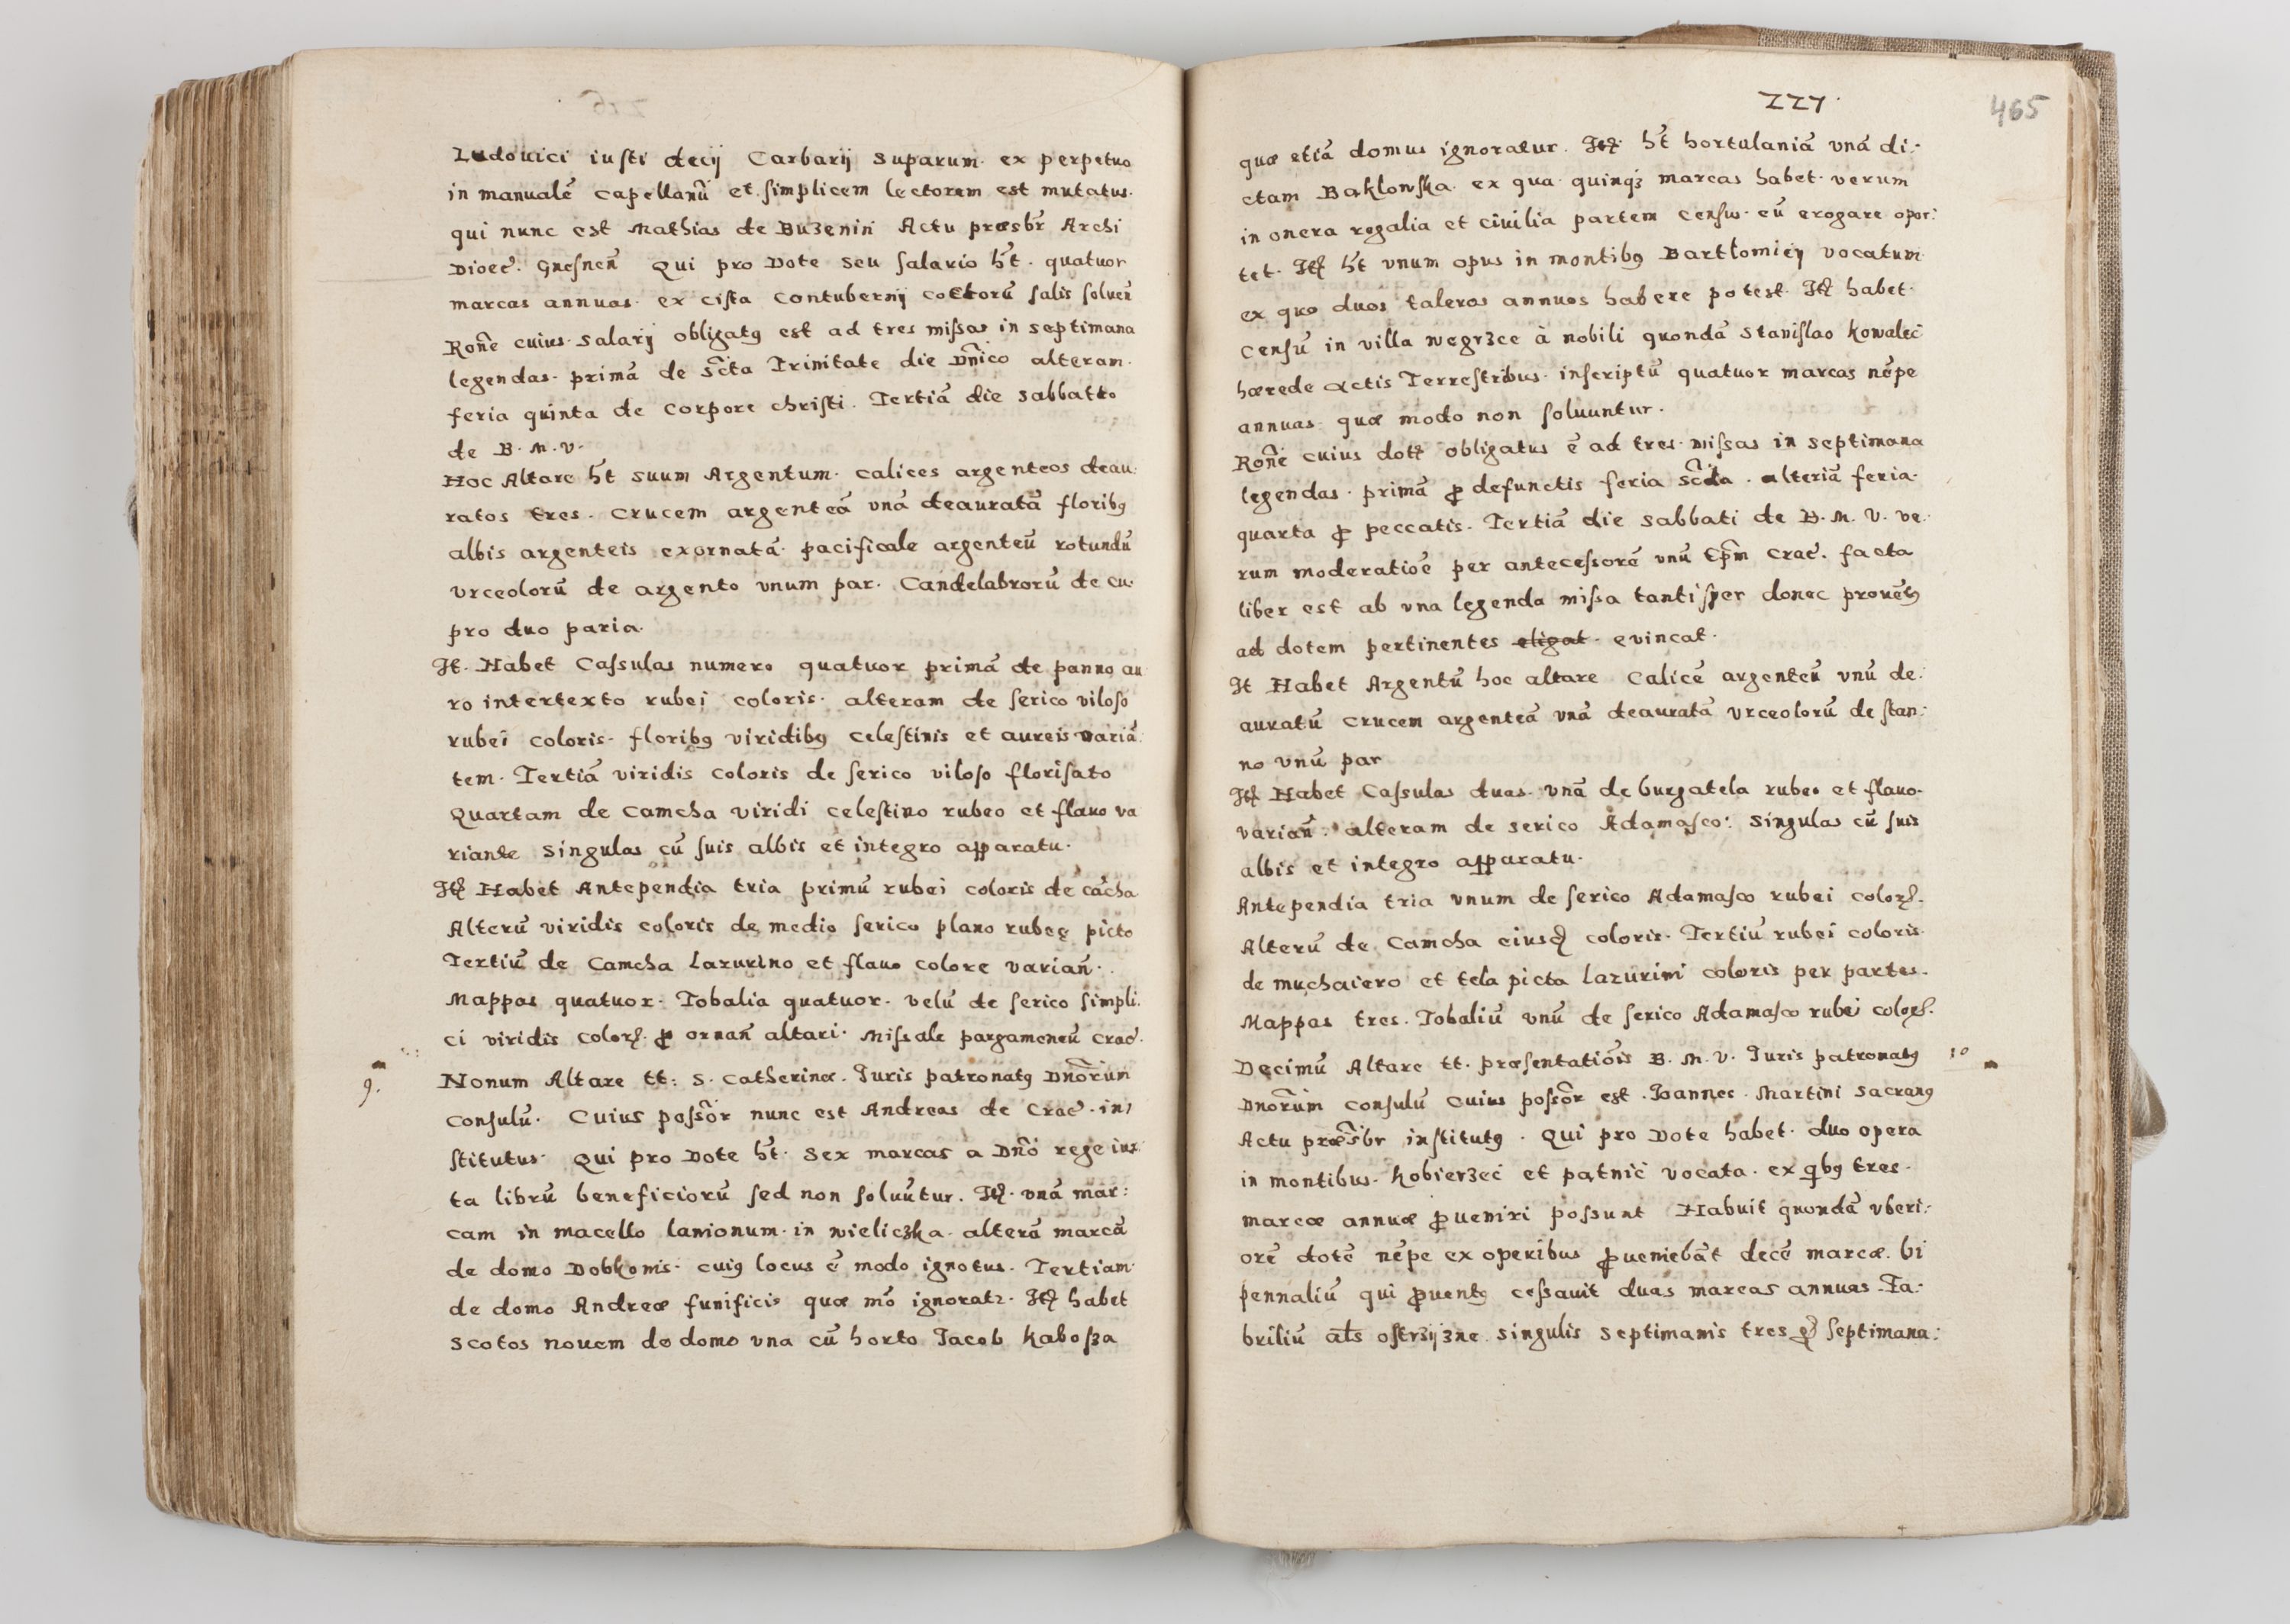 Ludouici iusti decij Carbarij Suparum ex perpetuo
in manualē capellanū et simplicem lectorem est mutatus.
qui nunc est Mathias de Buzenin Actu præsbr Archi
Dioec. Gnesnen̄ Qui pro Dote seu salario ht. quatuor
marcas annuas ex cista contubernij coctorū salis soluen̄
Rone cuius salarij obligatꝰ est ad tres missas in septimana
legendas. primā de scta Trinitate die Dnico alteram
feria quinta de Corpore christi. Tertiā die sabbatto
de B. M. V.
Hoc Altare ht suum Argentum. calices argenteos deau:
ratos tres. crucem argenteā vnā deauratā floribꝰ
albis argenteis exornatā. pacificale argenteū rotundū
vrceolorū de argento vnum par. Candelabrorū de cu:
pro duo paria.
It. Habet Cassulas numero quatuor primā de panno au
ro intertexto rubei coloris. alteram de serico viloso
rubei coloris. floribꝰ viridibꝰ celestinis et aureis variā:
tem. Tertiā viridis coloris de serico viloso florisato
Quartam de camcha viridi celestino rubeo et flauo va
riante singulas cū suis albis et integro apparatu.
Itē Habet Antependia tria primū rubei coloris de cācha
Alterū viridis coloris de medio serico plano rubeę picto
Tertiū de Camcha lazurino et flauo colore varian̄.
Mappas quatuor. Tobalia quatuor. velū de serico simpli:
ci viridis colorꝭ. ꝓ ornan̄ altari. Missale pargameneū crac.
9.
Nonum Altare tt: S. Catherinæ. Juris patronatꝰ Dnorum
consulū. Cuius possor nunc est Andreas de Crac. in/
stitutus. Qui pro Dote ht. Sex marcas a Dno rege iux
ta librū beneficiorū sed non soluūtur. Itē. vnā mar:
cam in macello lanionum in wieliczka. alterā marcā
de domo Dobkonis. cuiꝰ locus ē modo ignotus. Tertiam
de domo Andreæ funificis quæ mō ignoratr. Itē habet
scotos nouem de domo vna cū horto Jacob Kabosza
227.
465
quæ etiā domus ignoratur. Itē. ht hortulaniā vnā di:
ctam Baklonska ex qua quinqꝫ marcas habet. verum
in onera regalia et ciuilia partem census eū erogare opor:
tet. Itē ht vnum opus in montibꝰ Bartłomiey vocatum
ex quo duos taleros annuos habere potest. Itē habet
censū in villa wegrzce à nobili quondā Stanislao Kowalec
hærede actis Terrestribus inscriptū quatuor marcas nēpe
annuas quæ modo non soluuntur.
Rone cuius dotꝭ obligatus ē ad tres missas in septimana
legendas. primā ꝓ defunctis feria scda. alteriā feria
quarta ꝓ peccatis. Tertiā die sabbati de B. M. V. ve:
rum moderatioē per antecessorē vnū Epm Crac. facta
liber est ab vna legenda missa tantisper donec prouētꝰ
ad dotem pertinentes eligat evincat.
It Habet Argentū hoc altare calicē argenteū vnū de:
auratū crucem argenteā vnā deauratā vrceolorū de stan:
no vnū par
Itē Habet Cassulas duas. vnā de burgatela rubeo et flauo.
varian̄. alteram de serico Adamasco: singulas cū suis
albis et integro apparatu.
Antependia tria vnum de serico Adamasco rubei colorꝭ.
Alterū de Camcha eiusd coloris. Tertiū rubei coloris
de muchaiero et tela picta lazurini coloris per partes.
Mappas tres. Tobaliū vnū de serico Adamasco rubei colorꝭ.
Decimū Altare tt. præsentatiōis B. M. V. Juris patronatꝰ
10
Dnorum consulū cuius possor est. Joannes. Martini Sacranꝰ
Actu præsbr institutꝰ. Qui pro Dote habet. duo opera
in montibus. Kobierzec et pątnic vocata. ex qbꝰ tres
marcæ annuæ ꝓueniri possunt Habuit quondā vberi:
orē dotē nēpe ex operibus ꝓueniebāt decē marcæ. bi
pennaliū qui ꝓuentꝰ cessauit duas marcas annuas. Fa:
briliū als ostrzyzne. singulis septimanis tres gr septimana: